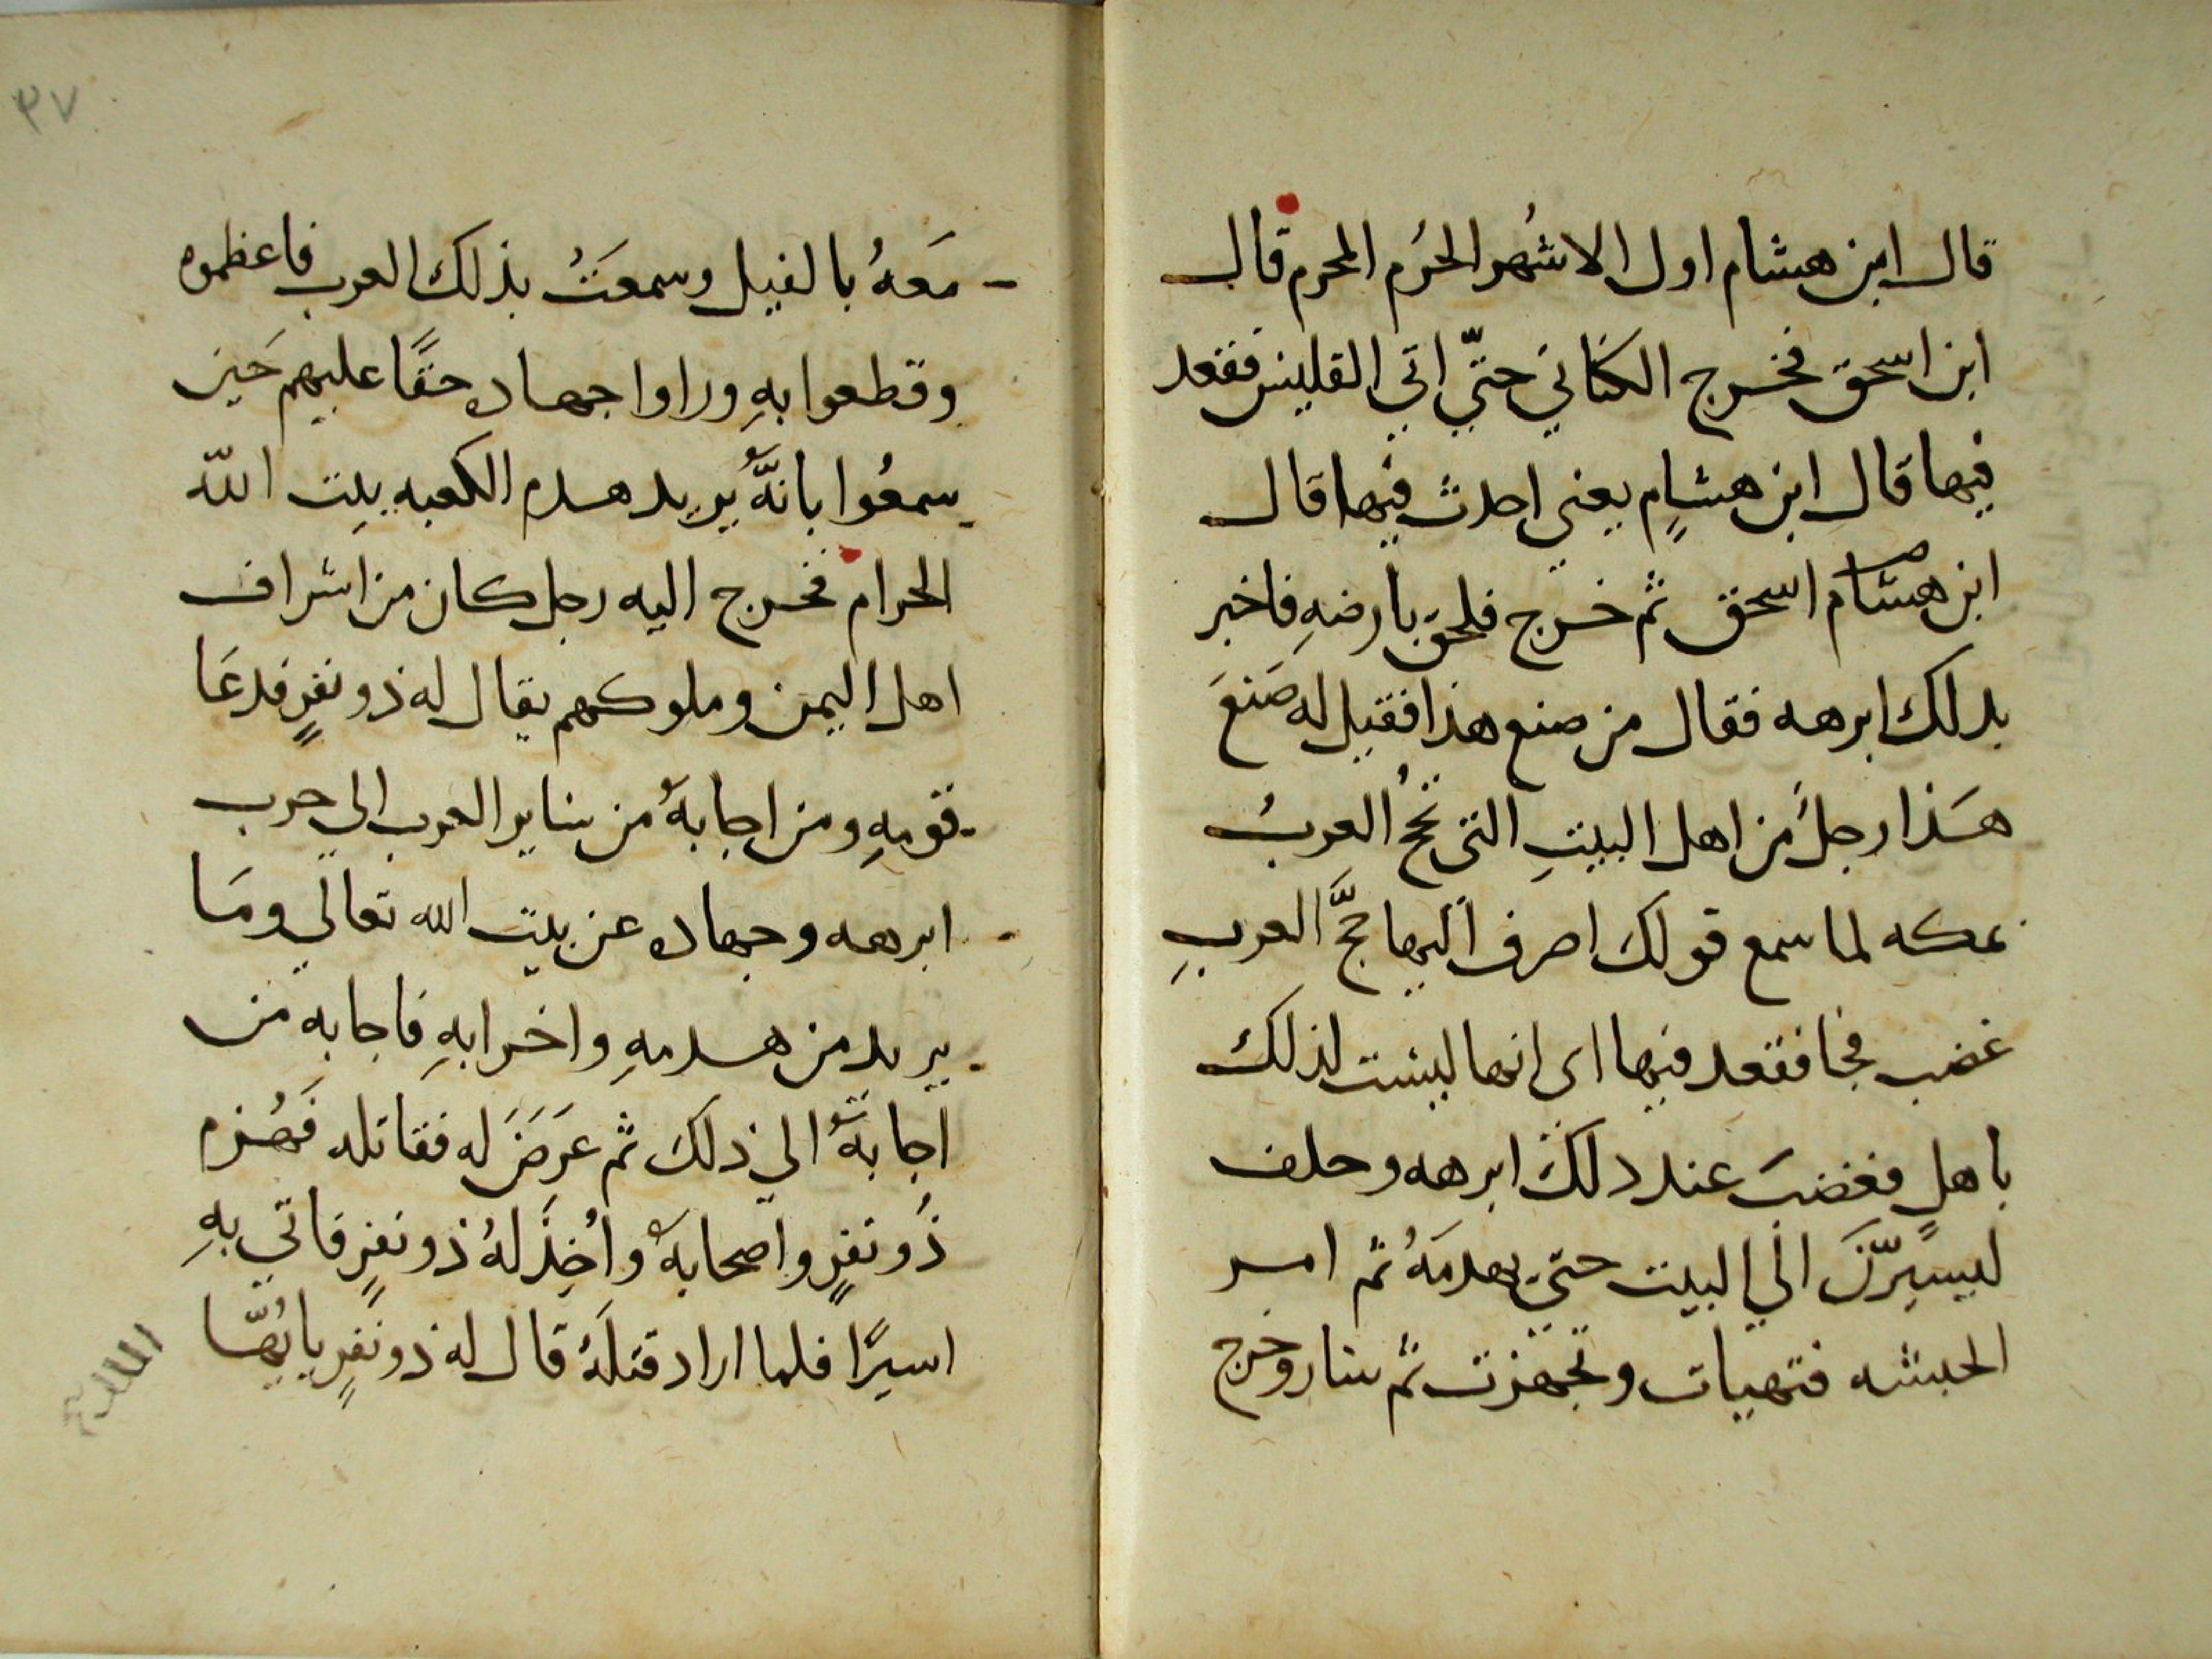 قال ابن هشام اول الاشهر الحرم المحرم قال
ابن اسحق فخرج الكناني حتي اتي القليس فقعد
فيها قال ابن هشام يعني احدث فيها قال
ابن هشام اسحق ثم خرج فلحق بارضه فاخبر
بدلك ابرهه فقال من صنع هذا فقيل له صنع
هذا رجل من اهل البيت التي تحج العرب
بمكه لما سمع قولك اصرف اليها حج العرب
غضب فجا فقعد فيها اي انها ليست لذلك
باهل فغضب عند دلك ابرهه وحلف
ليسيرن الي البيت حتي يهدمه ثم امر
الحبشه فتهيات وتجهزت ثم سار وخرج
٣٧
معه بالفيل وسمعت بذلك العرب فاعظموه
وقطعوا به وراوا جهاده حقا عليهم حين
سمعوا بانه يريد هدم الكعبه بيت الله
الحرام فخرج اليه رجل كان من اشراف
اهل اليمن وملوكهم يقال له ذو نفر فدعا
قومه ومن اجابه من ساير العرب الي حرب
ابرهه وجهاده عن بيت الله تعالي وما
يريد من هدمه واخرابه فاجابه من
اجابه الي ذلك ثم عرض له فقاتله فهزم
ذو نفر واصحابه واخذ له ذو نفر فاتي به
اسيرا فلما اراد قتله قال له ذو نفر يا يها